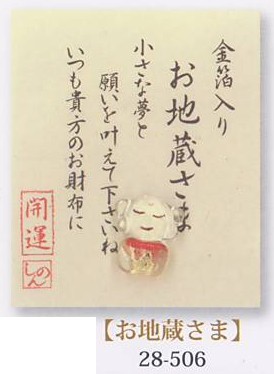 金箔入り
お地蔵さま
小さな夢と
願いを叶えて下さいね
いつも貴方のお財布に
開運
しのん
【お地蔵さま】
28-506